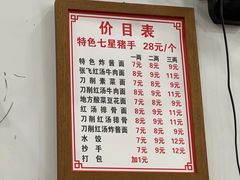 价目表
特色七星猪手 28元/个
一两 二两 三两
特色炸酱面 7元 8元 9元
张飞红汤牛肉面 8元 9元 11元
刀削素菜面 7元 8元 9元
刀削红汤牛肉面 8元 9元 11元
地方酸菜豆花面 7元 8元 9元
红汤排骨面 8元 9元 11元
刀削红汤排骨 8元 9元 11元
刀削红汤炸酱面 7元 8元 9元
水饺 7元 9元 12元
抄手 7元 9元 12元
打包 加1元